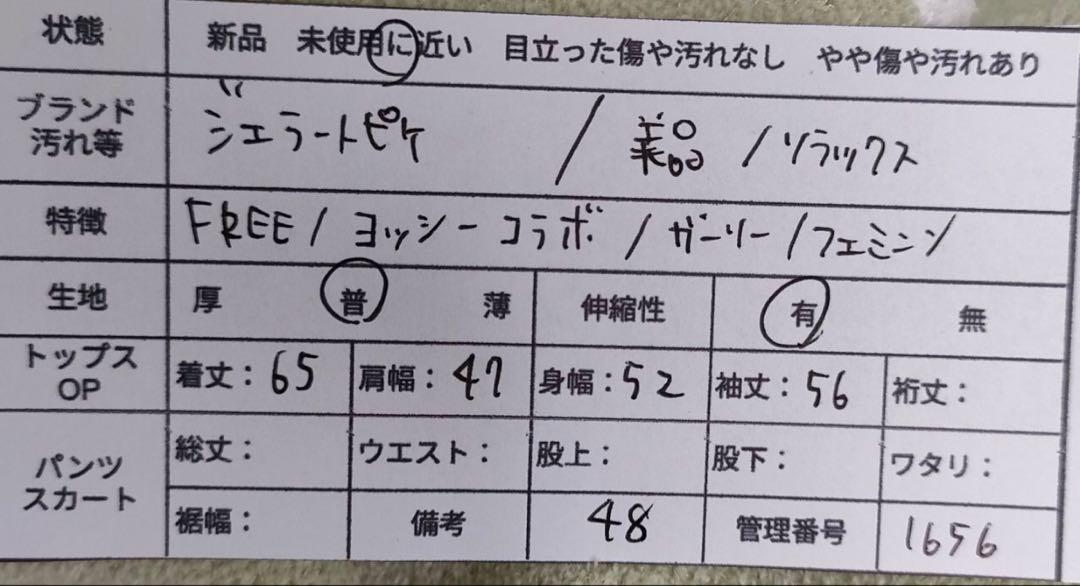 状態 新品 未使用に近い 目立った傷や汚れなし やや傷や汚れあり
ブランド
汚れ等 ジェラートピケ / 美品 / リラックス
特徴 FREE / ヨッシーコラボ / ガーリー / フェミニン
生地 厚 普 薄 伸縮性 有 無
トップス
OP 着丈：65 肩幅：47 身幅：52 袖丈：56 裄丈：
パンツ
スカート 総丈： ウエスト： 股上： 股下： ワタリ：
裾幅： 備考 48 管理番号 1656